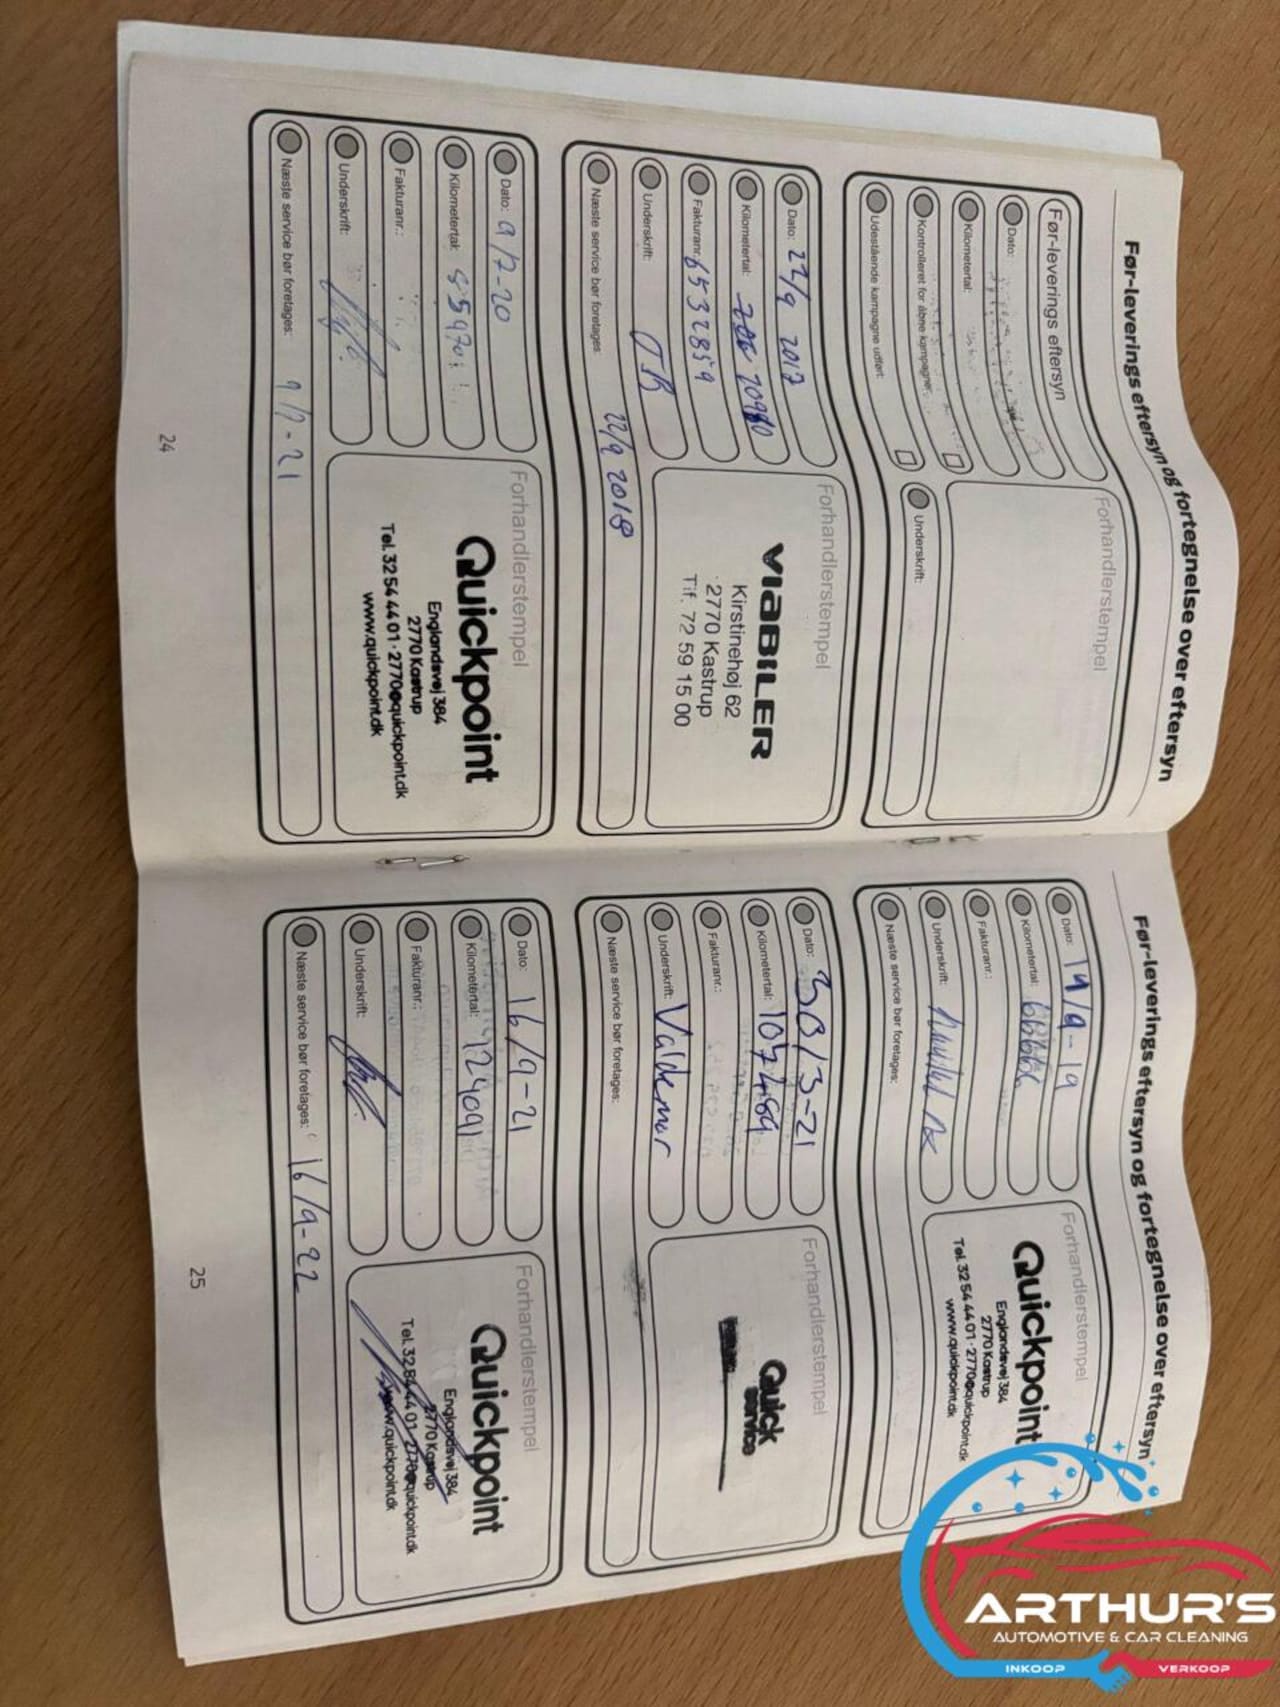 Før-leverings eftersyn og fortegnelse over eftersyn
Før-leverings eftersyn
Dato:
Kilometertal:
Kontrolleret for åbne kampagner:
Udestående kampagne udført:
Forhandlerstempel
Underskrift:
Dato: 22/9 2017
Kilometertal: 20980
Fakturanr.: 6532859
Underskrift:
Næste service bør foretages: 22/9 2018
Forhandlerstempel
VIABILER
Kirstinehøj 62
2770 Kastrup
Tlf. 72 59 15 00
Dato: 9/7-20
Kilometertal:
Fakturanr.:
Underskrift:
Næste service bør foretages: 9/7-21
Forhandlerstempel
Quickpoint
Englandsvej 384
2770 Kastrup
Tel. 32 54 44 01 · 2770@quickpoint.dk
www.quickpoint.dk
24
Før-leverings eftersyn og fortegnelse over eftersyn
Dato: 19/9-19
Kilometertal:
Fakturanr.:
Underskrift:
Næste service bør foretages:
Forhandlerstempel
Quickpoint
Englandsvej 384
2770 Kastrup
Tel. 32 54 44 01 · 2770@quickpoint.dk
www.quickpoint.dk
Dato: 30/3-21
Kilometertal: 107489
Fakturanr.:
Underskrift: Valdemar
Næste service bør foretages:
Forhandlerstempel
Quick
service
Dato: 16/9-21
Kilometertal: 124091
Fakturanr.:
Underskrift:
Næste service bør foretages: 16/9-22
Forhandlerstempel
Quickpoint
Englandsvej 384
2770 Kastrup
Tel. 32 54 44 01 · 2770@quickpoint.dk
www.quickpoint.dk
25
ARTHUR'S
AUTOMOTIVE & CAR CLEANING
INKOOP
VERKOOP